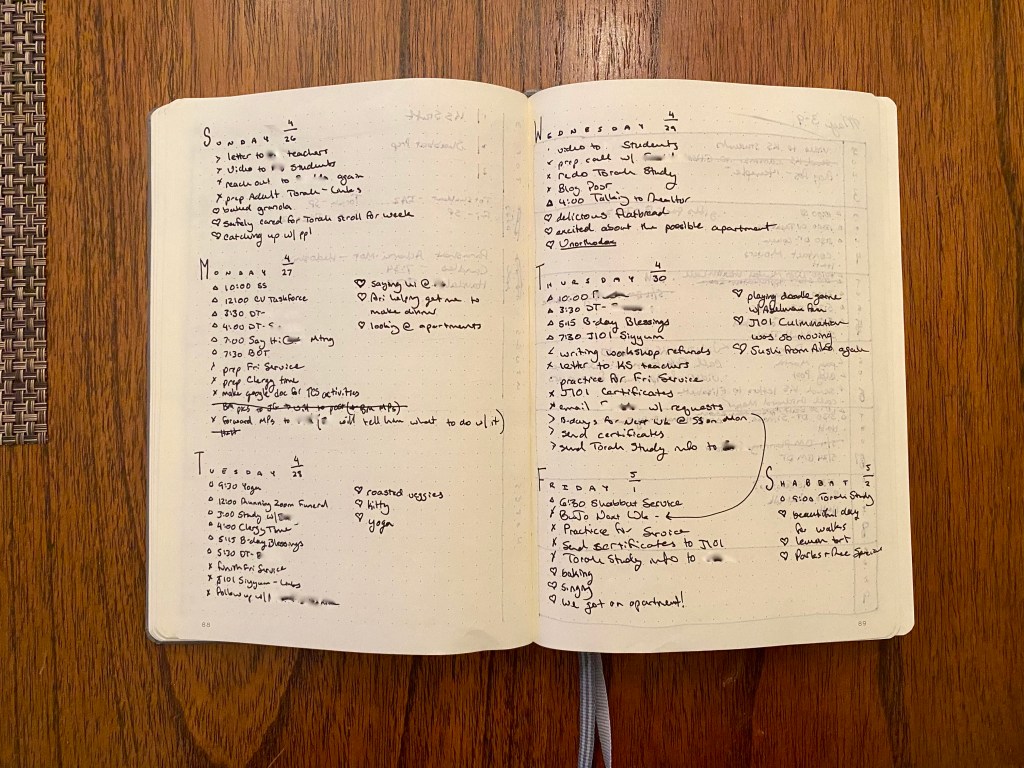 SUNDAY 4/26
> letter to teachers
> video to students
x reach out to again
x prep Adult Torah - Lukas
♡ baked granola
♡ safely cared for Torah scroll for week
♡ catching up w/ ppl
MONDAY 4/27
△ 10:00 SS
△ 12:00 CV Taskforce
△ 3:30 DT-
△ 4:00 DT-
△ 7:00 Say Hi Mtng
△ 7:30 BOT
prep Fri Service
x prep Clergy time
x make google doc for activities
x forward MPs to will tell them what to do w/ it)
♡ saying hi @
♡ Ari helping get me to
make dinner
♡ looking @ apartments
TUESDAY 4/28
△ 9:30 Yoga
△ 12:00 Running Zoom Funeral
△ Study w/
△ 4:00 Clergy Time
△ 5:15 B-day Blessings
△ 5:30 DT-
x finish Fri Service
x J101 Siyyum -
x Follow up w/
♡ roasted veggies
♡ kitty
♡ yoga
WEDNESDAY 4/29
video to students
x prep call w/
x redo Torah Study
x Blog Post
△ 4:00 Talking to Realtor
♡ delicious flatbread
♡ excited about the possible apartment
♡ Unorthodox
THURSDAY 4/30
△ 10:00
△ 3:30 DT-
△ 5:15 B-day Blessings
△ 7:30 J101 Siyyum
< writing workshop refunds
x letter to KS teachers
practice for Fri Service
x J101 Certificates
x email w/ requests
> B-days for Next Wk @ SS on Mon
> send certificates
> send Torah Study info to
♡ playing doodle game
w/ Abelman Fam
♡ J101 Culmination
was so moving
♡ Sushi from again
FRIDAY 5/1
△ 6:30 Shabbat Service
x BuJo Next Wk - ←
x Practice for Service
x Send certificates to J101
x Torah Study info to
♡ baking
♡ singing
♡ we got an apartment!
SHABBAT 5/2
9:00 Torah Study
♡ beautiful day
for walks
♡ lemon tart
♡ Parks + Rec Special
88
89